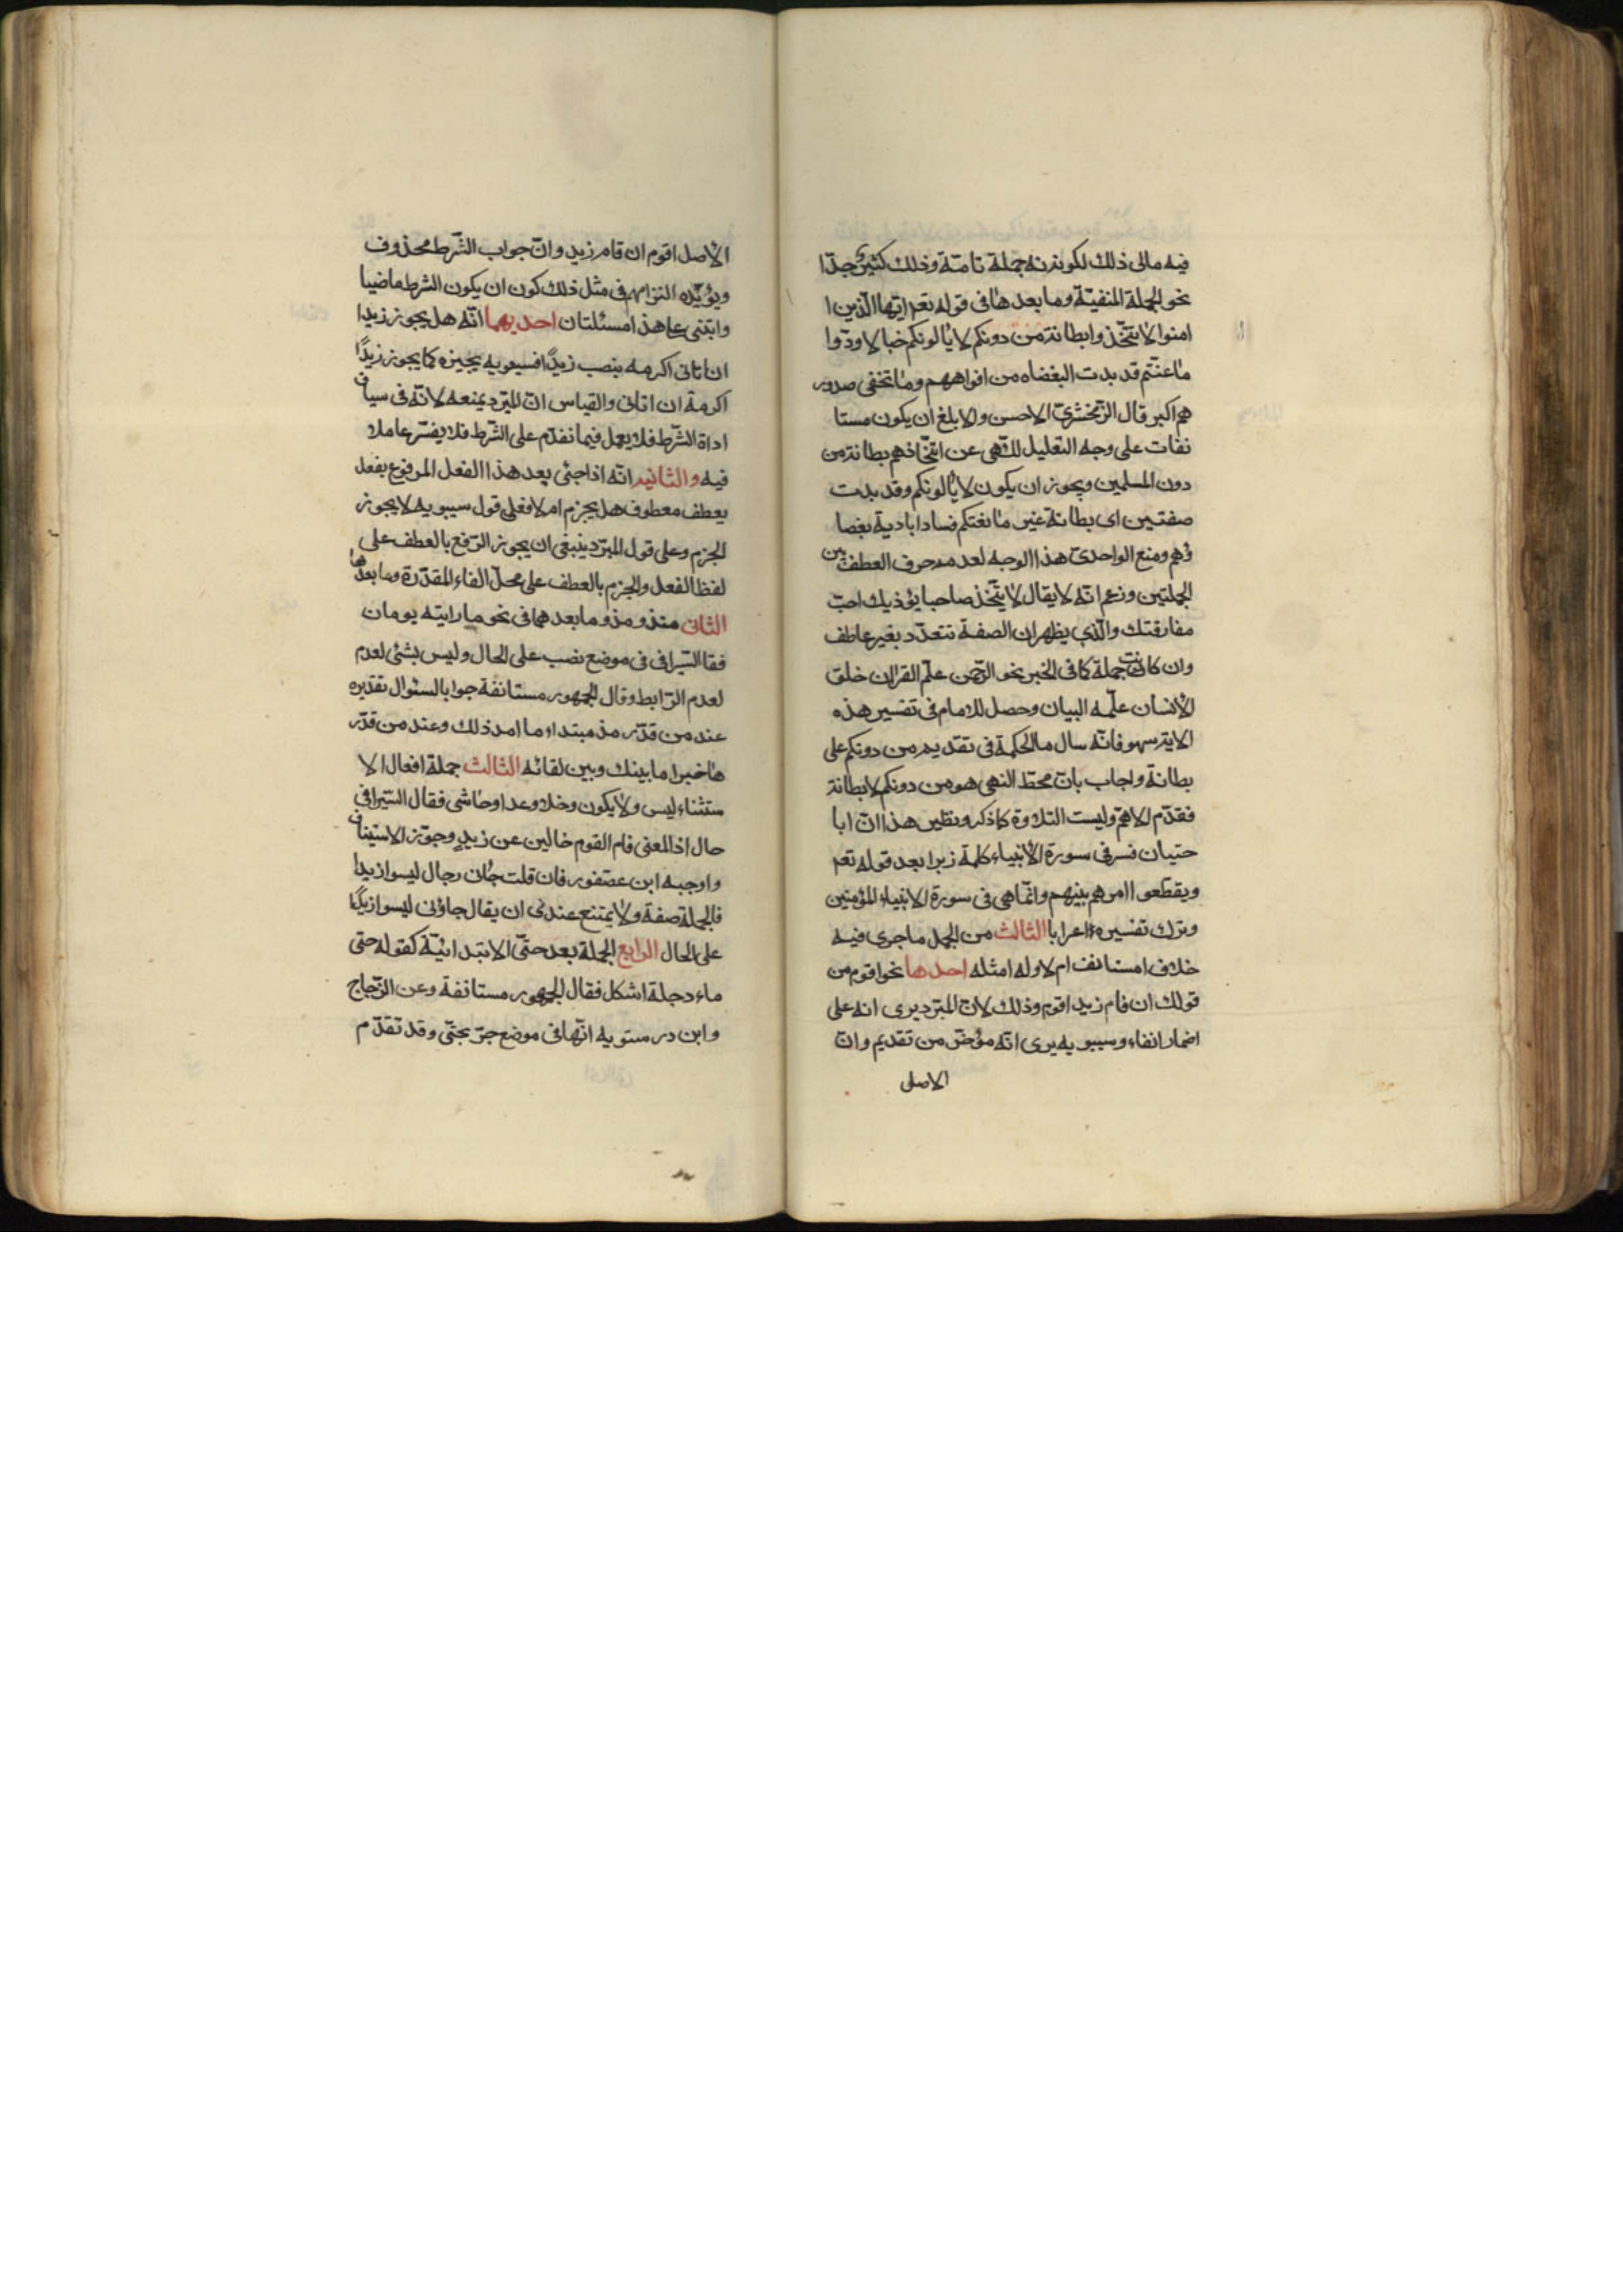 فيه مالى ذلك لكونه جملة تامة وذلك كثير جدّا
نحو الجملة المنفيّة وما بعدها فى قوله تعم ايّها الّذين ا
امنوا لا تتّخذوا بطانة من دونكم لا يألونكم خبالا ودّوا
ما عنتّم قد بدت البغضاء من افواههم وما تخفى صدور
هم اكبر قال الزّمخشرىّ الاحسن والابلغ ان يكون مستا
نفات على وجه التعليل للنّهى عن اتّخاذهم بطانة من
دون المسلمين ويجوز ان يكون لا يألونكم وقد بدت
صفتين اى بطانة غير ما نعتكم فسادا بادية بغضا
ؤهم ومنع الواحدىّ هذا الوجه لعدم حرف العطف بين
الجملتين وزعم انّه لا يقال لا تتّخذ صاحبا يؤذيك احبّ
مفارقتك والّذى يظهر ان الصفة تتعدّد بغير عاطف
وان كانت جملة كما فى الخبر نحو الرّحمن علّم القران خلق
الانسان علّمه البيان وحصل للامام فى تفسير هذه
الاية سهو فانّه سال ما الحكمة فى تقديم من دونكم على
بطانة واجاب بانّ محطّ النهى هو من دونكم لا بطانة
فقدّم الاهمّ وليست التلاوة كما ذكر ونظير هذا انّ ابا
حيّان فسر فى سورة الأنبياء كلمة زبرا بعد قوله تعم
ويقطعوا امرهم بينهم وانّما هى فى سورة الانبياء المؤمنين
وترك تفسيرها اعرابا الثالث من الجمل ما جرى فيه
خلاف امستانف ام لا وله امثله احدها نحو اقوم من
قولك ان قام زيد اقوم وذلك لانّ المبرّد يرى انه على
اضمار الفاء وسيبويه يرى انّه مؤخّر من تقديم وانّ
الاصل
الأصل اقوم ان قام زيد وانّ جواب الشّرط محذوف
ويؤيّده التزامهم فى مثل ذلك كون ان يكون الشرط ماضيا
وابتنى على هذا مسئلتان احديهما انّه هل يجوز زيدا
ان تاتى اكرمه بنصب زيدًا فسيبويه يجيزه كما يجوز زيدًا
اكرمه ان اتانى والقياس انّ المبرّد يمنعه لانّه فى سياق
اداة الشّرط فلا يعمل فيما تقدّم على الشّرط فلا يفسّر عاملا
فيه والثانيه انّه اذا جئى بعد هذا الفعل المرفوع بفعل
يعطف معطوف هل يجزم ام لا فعلى قول سيبويه لا يجوز
الجزم وعلى قول المبرّد ينبغى ان يجوز الرّفع بالعطف على
لفظ الفعل والجزم بالعطف على محلّ الفاء المقدّرة وما بعدها
الثانى منذ ومذ وما بعدهما فى نحو ما رايته يومان
فقا السّيرافى فى موضع نصب على الحال وليس بشئى لعدم
لعدم الرّابط وقال الجمهور مستانفة جوابا لسئوال تقديره
عند من قدّر مذ مبتداء ما امد ذلك وعند من قدّر
ها خبرا ما بينك وبين لقائه الثالث جملة افعال الا
ستثناء ليس ولا يكون وخلا وعدا وحاشى فقال السّيرافى
حال اذ المعنى قام القوم خالين عن زيد وجوّز الاستيناف
واوجبه ابن عصفور فان قلت جائن رجال ليسوا زيدا
فالجملة صفة ولا يمتنع عندى ان يقال جاؤنى ليسوا زيدًا
على الحال الرابع الجملة بعد حتّى الابتدائيّة كقوله حتى
ماء دجلة اشكل فقال الجمهور مستانفة وعن الزّجاج
وابن درستويه انّها فى موضع جرّ بحتّى وقد تقدّم